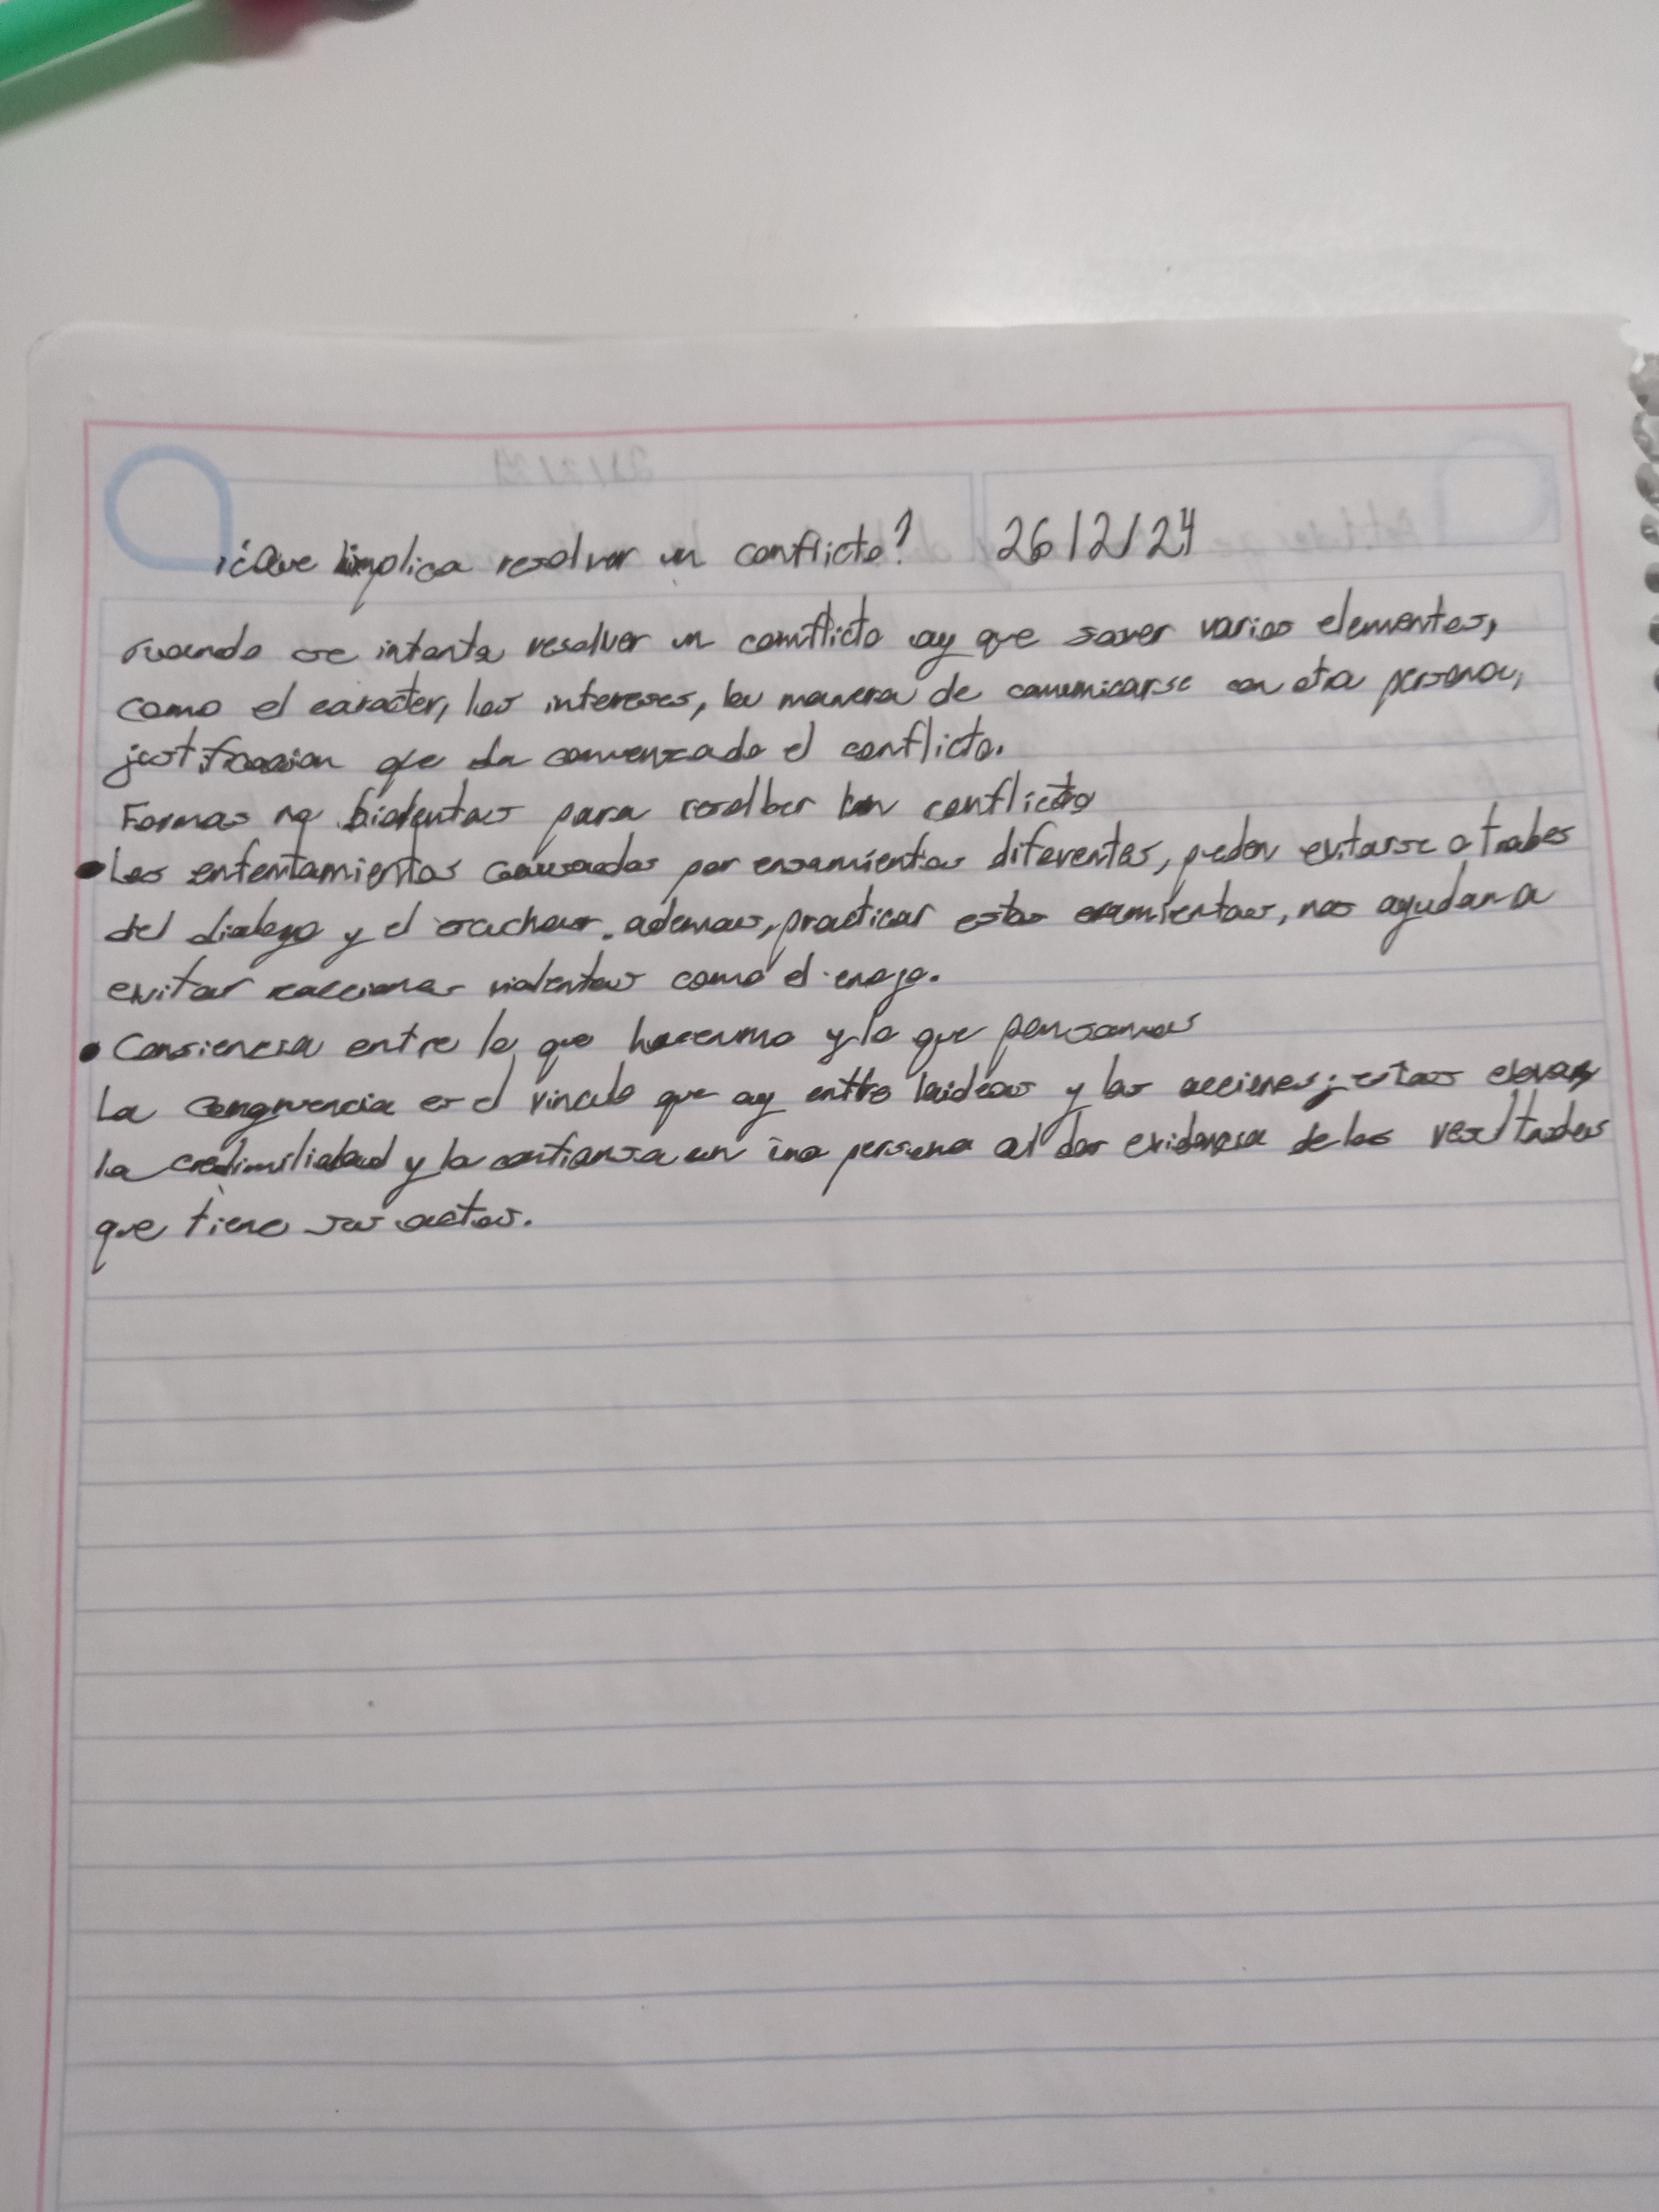 ¿Que implica resolver un conflicto? 26/2/24
cuando se intenta resolver un comflicto ay que saver varios elementos,
como el caracter, los intereses, la manera de comunicarse con otra persona,
justificacion que da comenzado el conflicto.
Formas no biolentas para resolber un conflicto
• Los enfentamientos causados por ensamientos diferentes, pueden evitarse a trabes
del dialogo y el escuchar. ademas, practicar estas eramientas, nos ayudan a
evitar reacciones violentas como el enojo.
• Consiencia entre lo que hacemmo y lo que pensamos
La congruencia es el vinculo que ay entre laideas y las acciones; estas elevan
la credimilidad y la confiansa en una persona al dar evidensia de los resultados
que tiene sus actos.